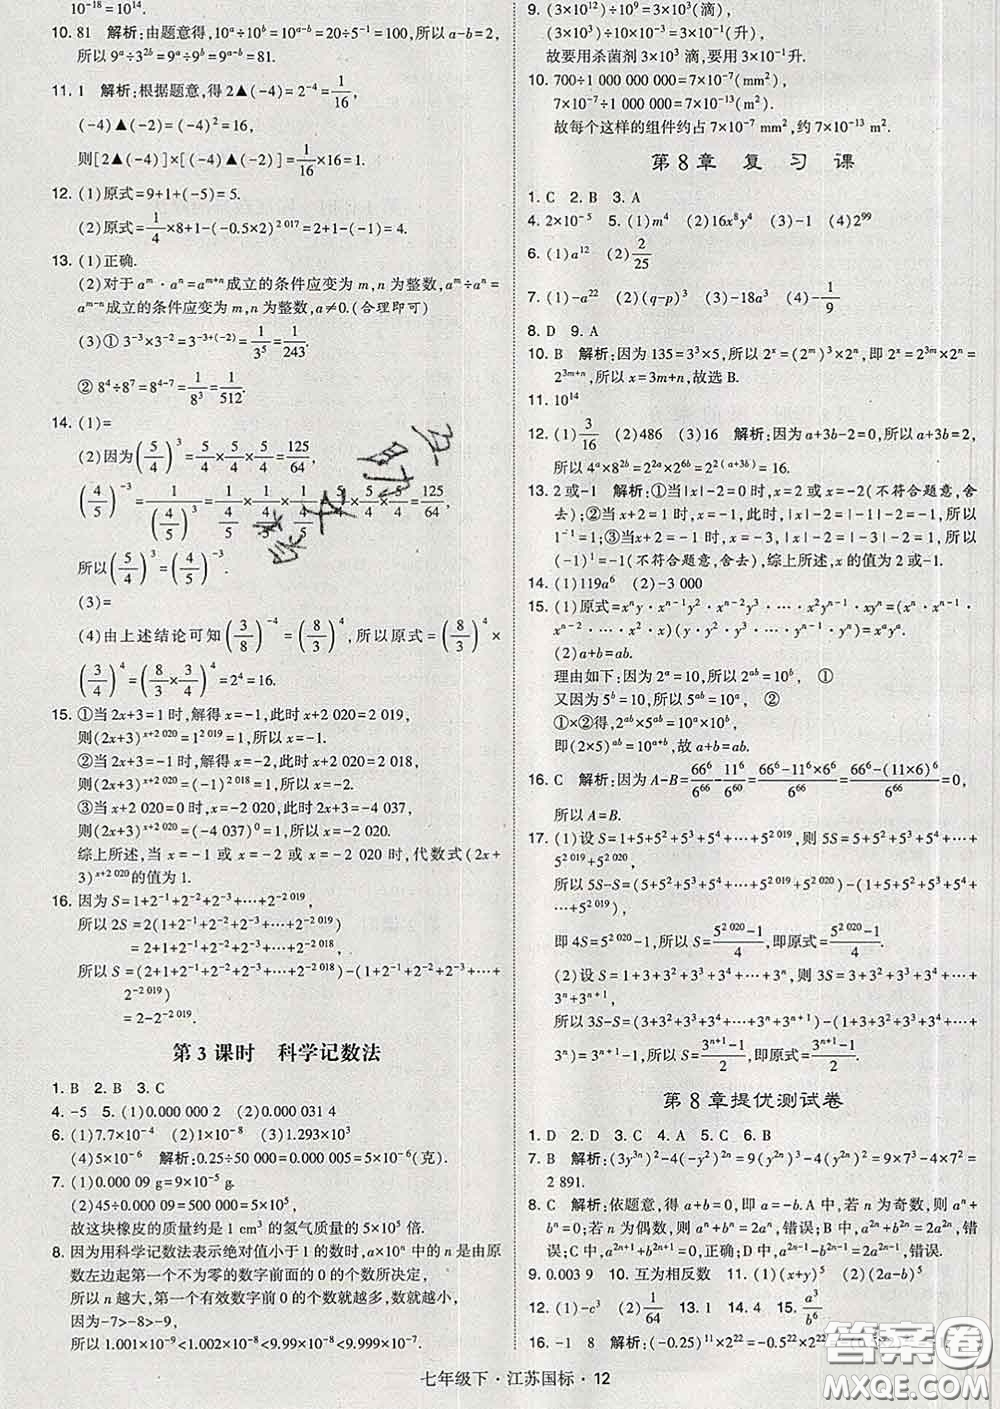 10⁻¹⁸=10¹⁴.
10. 81 解析:由题意得,10ᵃ÷10ᵇ=10ᵃ⁻ᵇ=20÷5⁻¹=100,所以a-b=2,
所以9ᵃ÷3²ᵇ=9ᵃ÷9ᵇ=9ᵃ⁻ᵇ=81.
11. 1 解析:根据题意,得2▲(-4)=2⁻⁴=1/16,
(-4)▲(-2)=(-4)²=16,
则[2▲(-4)]×[(-4)▲(-2)]=1/16×16=1.
12. (1)原式=9+1+(-5)=5.
(2)原式=1/4×8+1-(-0.5×2)²⁰¹⁷=2+1-(-1)=4.
13. (1)正确.
(2)对于aᵐ·aⁿ=aᵐ⁺ⁿ成立的条件应变为m,n为整数,aᵐ÷aⁿ=
aᵐ⁻ⁿ成立的条件应变为m,n为整数,a≠0.(合理即可)
(3)① 3⁻³×3⁻²=3⁻³⁺⁽⁻²⁾=1/3⁵=1/243.
② 8⁴÷8⁷=8⁴⁻⁷=1/8³=1/512.
14. (1)=
(2)因为(5/4)³=5/4×5/4×5/4=125/64,
(4/5)⁻³=1/(4/5)³=1/(4/5)×1/(4/5)×1/(4/5)=5/4×5/4×5/4=125/64,
所以(5/4)³=(4/5)⁻³.
(3)=
(4)由上述结论可知(3/8)⁻⁴=(8/3)⁴,所以原式=(8/3)⁴×
(3/4)⁴=(8/3×3/4)⁴=2⁴=16.
15. ①当2x+3=1时,解得x=-1,此时x+2 020=2 019,
则(2x+3)ˣ⁺²⁰²⁰=1²⁰¹⁹=1,所以x=-1.
②当2x+3=-1时,解得x=-2,此时x+2 020=2 018,
则(2x+3)ˣ⁺²⁰²⁰=(-1)²⁰¹⁸=1,所以x=-2.
③当x+2 020=0时,x=-2 020,此时2x+3=-4 037,
则(2x+3)ˣ⁺²⁰²⁰=(-4 037)⁰=1,所以x=-2 020.
综上所述,当x=-1或x=-2或x=-2 020时,代数式(2x+
3)ˣ⁺²⁰²⁰的值为1.
16. 因为S=1+2⁻¹+2⁻²+2⁻³+…+2⁻²⁰¹⁹,
所以2S=2(1+2⁻¹+2⁻²+2⁻³+…+2⁻²⁰¹⁹)
=2+1+2⁻¹+2⁻²+2⁻³+…+2⁻²⁰¹⁸,
所以S=(2+1+2⁻¹+2⁻²+…+2⁻²⁰¹⁸)-(1+2⁻¹+2⁻²+…+
2⁻²⁰¹⁹)
=2-2⁻²⁰¹⁹.
第3课时 科学记数法
1. B 2. B 3. C
4. -5 5. (1)0.000 000 2 (2)0.000 031 4
6. (1)7.7×10⁻⁴ (2)1×10⁻⁸ (3)1.293×10⁻³
(4)5×10⁻⁶ 解析:0.25÷50 000=0.000 005=5×10⁻⁶(克).
7. (1)0.000 09 g=9×10⁻⁵ g.
(2)45÷0.000 09=500 000=5×10⁵,
故这块橡皮的质量约是1 cm³的氢气质量的5×10⁵倍.
8. 因为用科学记数法表示绝对值小于1的数时,a×10ⁿ中的n是由原
数左边起第一个不为零的数字前面的0的个数所决定,
所以n越大,第一个有效数字前0的个数就越多,数就越小,
因为-7>-8>-9,
所以1.001×10⁻⁹<1.002×10⁻⁸<9.99×10⁻⁸<9.999×10⁻⁷.
9. (3×10¹²)÷10⁹=3×10³(滴),
(3×10³)÷10⁶=3×10⁻³(升),
故要用杀菌剂3×10³滴,要用3×10⁻³升.
10. 700÷1 000 000 000=7×10⁻⁷(mm²),
7×10⁻⁷÷1 000 000=7×10⁻¹³(m²).
故每个这样的组件约占7×10⁻⁷ mm²,约7×10⁻¹³ m².
第8章 复习课
1. C 2. B 3. A
4. 2×10⁻⁵ 5. (1)m⁴ (2)16x⁸y⁴ (3)-1 (4)2⁹⁹
6. (1)a¹² (2)2/25
7. (1)-a²² (2)(q-p)³ (3)-18a³ (4)-1/9
8. D 9. A
10. B 解析:因为135=3³×5,所以2ˣ=(2ᵐ)³×2ⁿ,即2ˣ=2³ᵐ×2ⁿ=
2³ᵐ⁺ⁿ,所以x=3m+n,故选B.
11. 10¹⁴
12. (1)3/16 (2)486 (3)16 解析:因为a+3b-2=0,所以a+3b=2,
所以4ᵃ×8²ᵇ=2²ᵃ×2⁶ᵇ=2²⁽ᵃ⁺³ᵇ⁾=2⁴=16.
13. 2或-1 解析:①当|x|-2=0时,x=2或x=-2(不符合题意,舍
去);②当x-2=1时,x=3或x=-1,此时,|x|-2=|-1|-2=-1,
1⁻¹=1;③当x-2=-1时,x=1或x=-3,|x|-2=|-3|-2=1,所以
(-1)¹=-1(不符合题意,舍去),综上所述,x的值为2或-1.
14. (1)119a⁶ (2)-3 000
15. (1)原式=xⁿy·xⁿ⁻¹y²·xⁿ⁻²y³·…·x²yⁿ⁻¹·xyⁿ=(xⁿ·xⁿ⁻¹·
xⁿ⁻²·…·x²·x)(y·y²·y³·…·yⁿ⁻¹·yⁿ)=xᵃyᵃ.
(2)a+b=ab.
理由如下:因为2ᵃ=10,所以2ᵃᵇ=10ᵇ, ①
又因为5ᵇ=10,所以5ᵃᵇ=10ᵃ, ②
①×②得,2ᵃᵇ×5ᵃᵇ=10ᵃ×10ᵇ,
即(2×5)ᵃᵇ=10ᵃ⁺ᵇ,故a+b=ab.
16. C 解析:因为A-B=66⁶/6⁶⁶-11⁶/6⁶⁰=(66⁶-11⁶×6⁶)/6⁶⁶=(66⁶-(11×6)⁶)/6⁶⁶=0,
所以A=B.
17. (1)设S=1+5+5²+5³+5⁴+…+5²⁰¹⁹,则5S=5+5²+5³+5⁴+…+
5²⁰¹⁹+5²⁰²⁰,
所以5S-S=(5+5²+5³+5⁴+…+5²⁰²⁰)-(1+5+5²+5³+…+5²⁰¹⁹),
即4S=5²⁰²⁰-1,所以S=(5²⁰²⁰-1)/4,即原式=(5²⁰²⁰-1)/4.
(2)设S=1+3+3²+3³+3⁴+…+3ⁿ,则3S=3+3²+3³+3⁴+…+
3ⁿ+3ⁿ⁺¹,
所以3S-S=(3+3²+3³+3⁴+…+3ⁿ⁺¹)-(1+3+3²+3³+3⁴+…+
3ⁿ)=3ⁿ⁺¹-1,所以S=(3ⁿ⁺¹-1)/2,即原式=(3ⁿ⁺¹-1)/2.
第8章提优测试卷
1. D 2. D 3. D 4. A 5. C 6. B
7. B 解析:(3y³ⁿ)²-4(-y²)²ⁿ=9(y²ⁿ)³-4(y²ⁿ)²=9×7³-4×7²=
2 891.
8. C 解析:依题意,得a+b=0,即a=-b.A中,若n为奇数,则aⁿ+
bⁿ=0;若n为偶数,则aⁿ+bⁿ=2aⁿ,错误;B中,a²ⁿ+b²ⁿ=2a²ⁿ,错
误;C中,a²ⁿ⁺¹+b²ⁿ⁺¹=0,正确;D中,a²ⁿ⁻¹-b²ⁿ⁻¹=2a²ⁿ⁻¹,错误.
9. 0.003 9 10. 互为相反数 11. (1)(x+y)⁵ (2)(2a-b)⁵
12. (1)-c³ (2)1/64 13. 1 14. 4 15. a³/b⁶
16. -1 8 解析:(-0.25)¹¹×2²²=-0.5²²×2²²
七年级下·江苏国标·12
答案圈
MXQE.COM